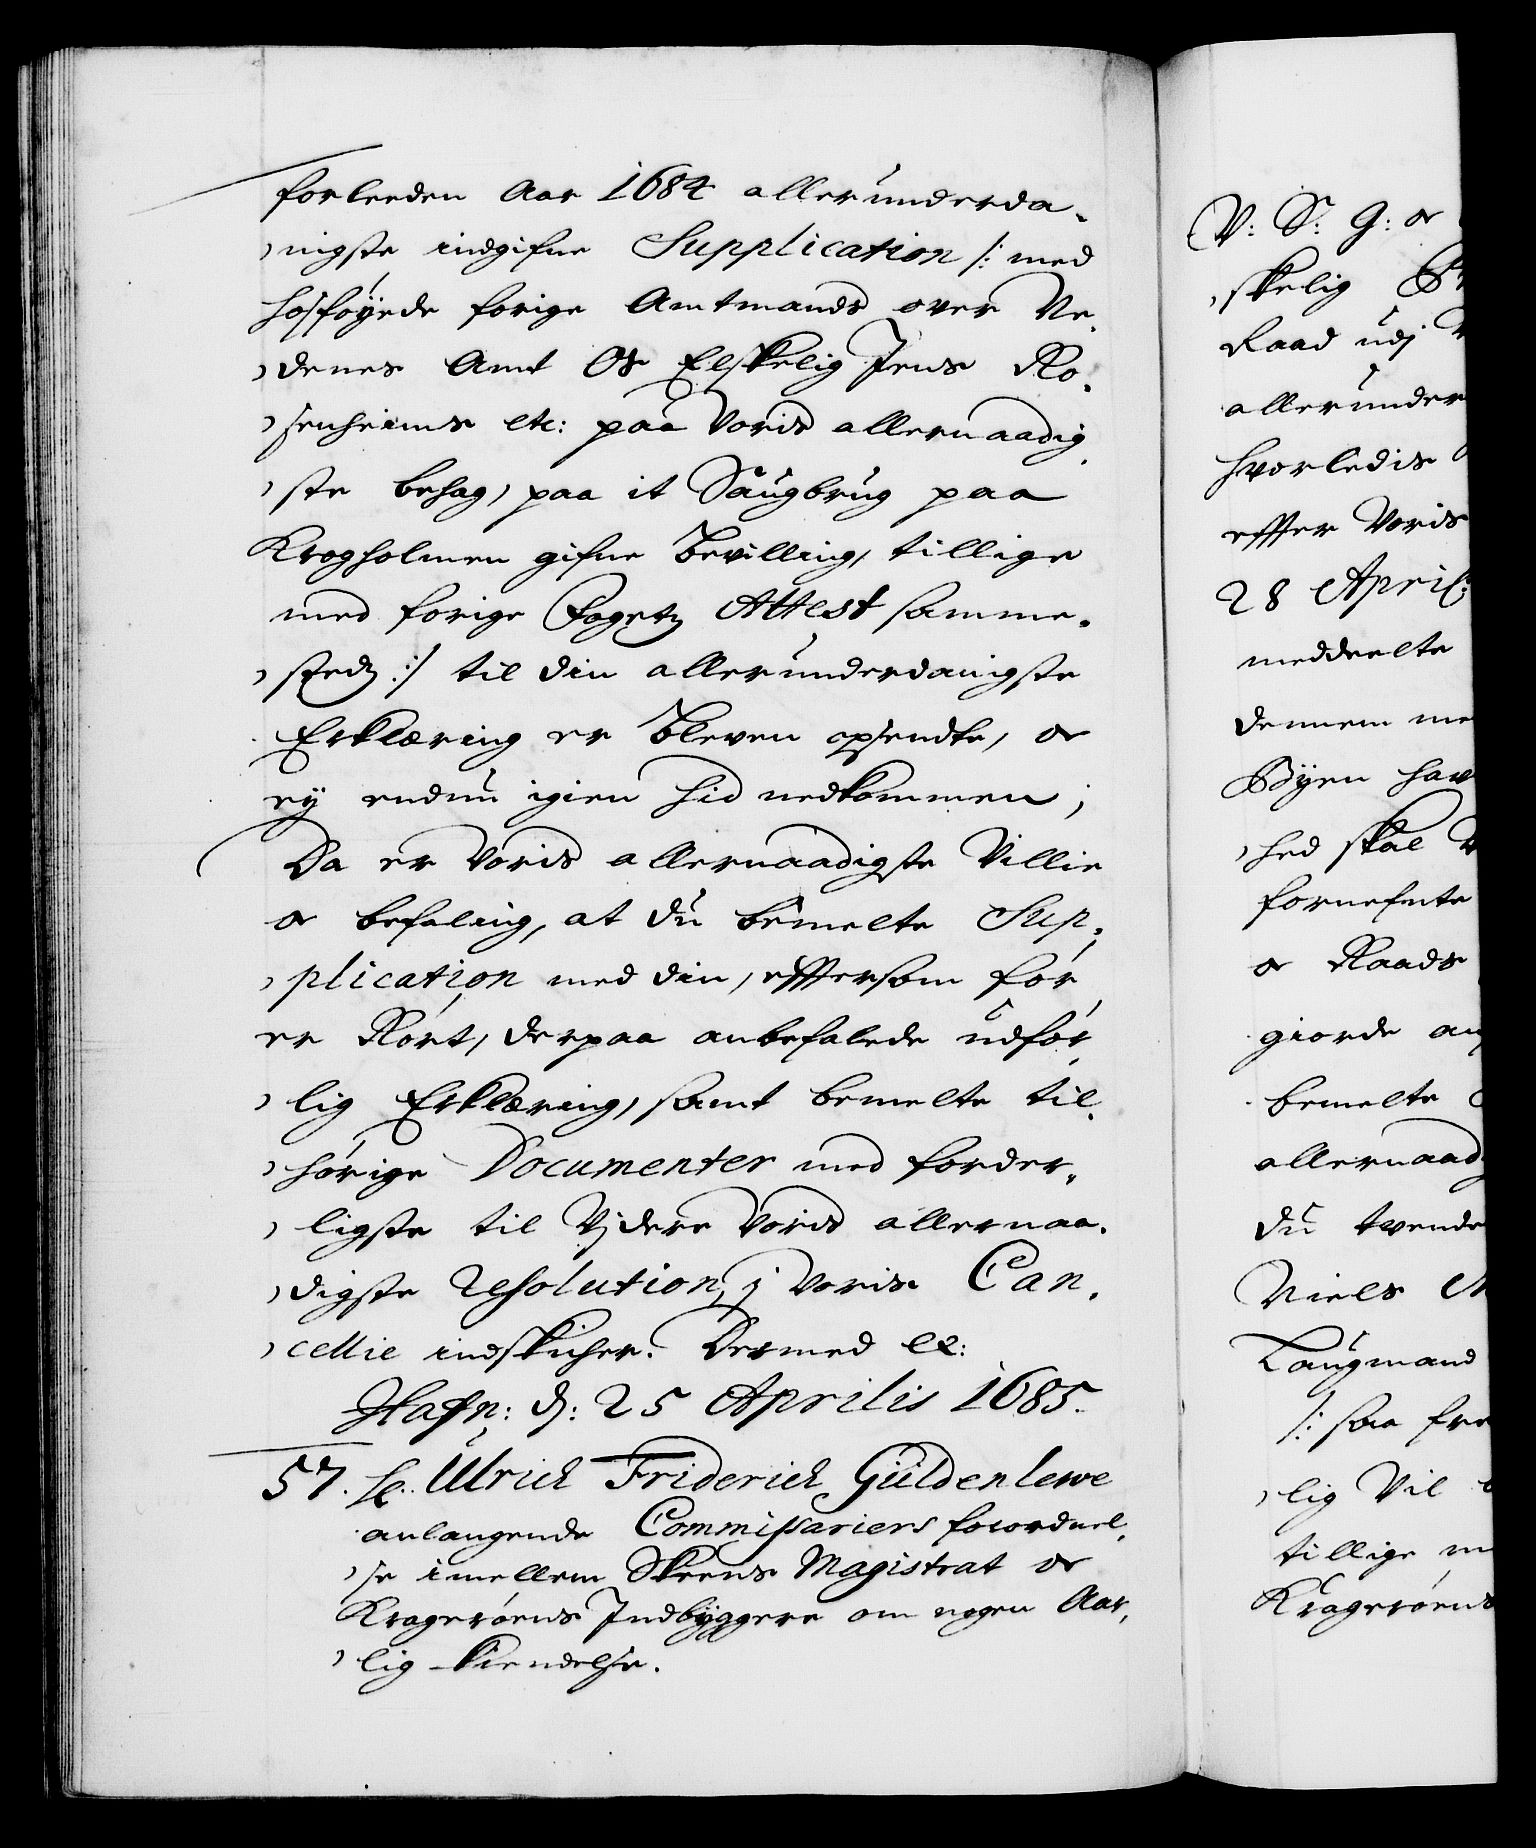 forleeden Aar 1684 allerunderda-
nigste indgifne Supplication /: med
hosføyede forige Amtmands over Ne-
denes Amt Os Elskelig Jens Ro-
senheims etc: paa Voris allernaadig-
ste behag, paa it Saugbrug paa
Krogholmen gifne Bevilling, tillige
med forige Fogetz Attest samme-
stedz :/ til din allerunderdanigste
Erklæring er bleven opsendte, oc
ey endnu igien hid nedkommen;
Da er Voris allernaadigste Villie
oc befaling, at du bemelte Sup-
plication med din, efftersom før
er Rørt, derpaa anbefalede udfør-
lig Erklæring, samt bemelte til-
hørige Documenter med forder-
ligste til Vjdere Voris allernaa-
digste Resolution, j Voris Can-
cellie indskicher. Dermed etc:
Hafn: d: 25 Aprilis 1685.
57. Hr. Ulrich Friderich Güldenlewe
anlangende Commissariers forordnel-
se imellem Skeens Magistrat oc
Kragerøens Indbyggere om nogen Aar-
lig kiendelse.
V: S: G: oc
skelig
Raad udj
allerunder
hvorledis
effter Voris
28 April:
meddeelte
dennem me
Byen hav
hed skal
fornefnte
oc Raads
giorde an
bemelte
allernaad
du tvende
Niels
Laugmand
/: saa fre
lig Vil
tillige m
Kragerøens